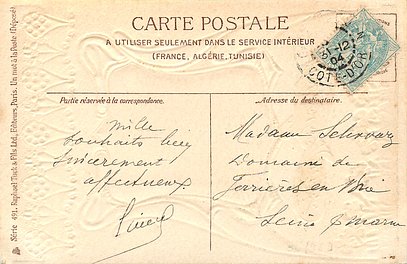 CARTE POSTALE
A UTILISER SEULEMENT DANS LE SERVICE INTÉRIEUR
(FRANCE, ALGÉRIE, TUNISIE)
12
04
COTE-D'OR
Partie réservée à la correspondance.
Adresse du destinataire.
Mille
souhaits bien
sincèrement
affectueux
Madame Schwarz
Domaine de
Ferrières en Brie
Seine & Marne
Série 491. Raphael Tuck & Fils Ltd, Editeurs, Paris.